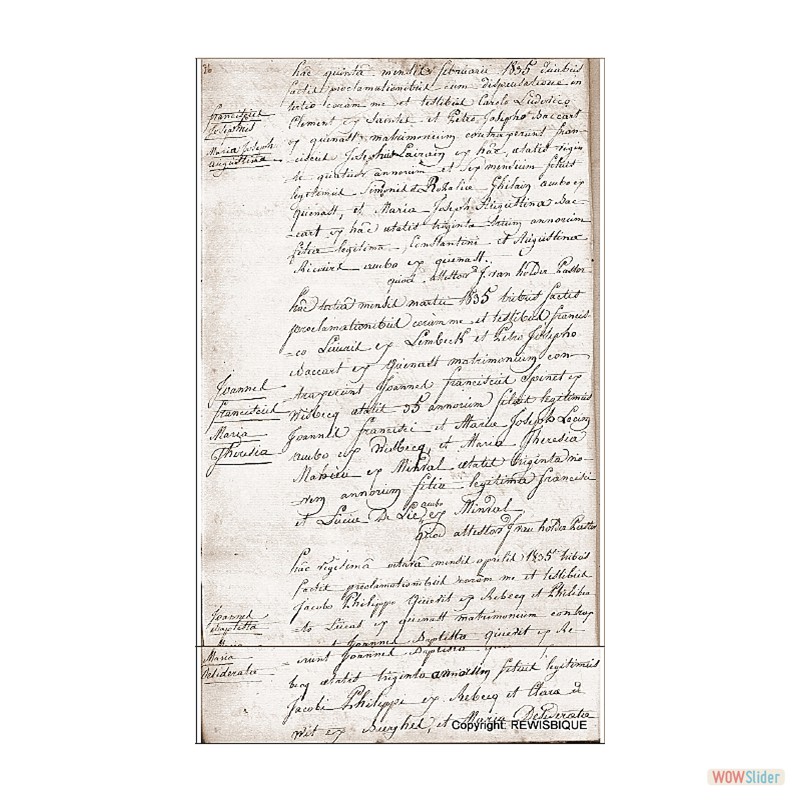 36
hâc quintâ mensis februarii 1835 tribus
factis proclamationibus cum dispensatione in
tertio coram me et testibus Carolo Ludovico
Clement ex Saintes et Petro Josepho Baccart
ex quenast matrimonium contraxerunt fran-
ciscus Josephus Lairain ex hâc, ætatis vigin-
ti quatuor annorum et sex mensium filius
legitimus Simonis & Rosaliæ Ghilain ambo ex
quenast, et Maria Joseph Augustina Bac-
cart ex hâc ætatis triginta trium annorum
filia legitima Constantini et Augustina
Ricourt ambo ex quenast.
quod attestor J. van holder Pastor
franciscus
Josephus
Maria Joseph
augustina
hâc tertiâ mensis martii 1835 tribus factis
proclamationibus coram me et testibus francis-
co ex Lembeck et Petro Josepho
Baccart ex Quenast matrimonium con-
traxerunt Joannes franciscus Spinet ex
Wisbecq ætatis 35 annorum filius legitimus
Joannis francisci et Maria Joseph
ambo ex Wisbecq, et Maria Theresia
Mahieu ex Minval ætatis triginta no-
vem annorum filia legitima francisci
et Luciæ De ambo ex Minval
quod attestor J van holder Pastor
Joannes
franciscus
Maria
Theresia
hâc vigesimâ octavâ mensis aprilis 1835 tribus
factis proclamationibus coram me et testibus
Jacobo Philippe ex Rebecq et Philiber
-to Lucas ex quenast matrimonium contrax
et Joannes Baptista ex Re
-erunt Joannes Baptista
becq ætatis triginta annorum filius legitimus
Jacobi Philippe ex Rebecq et Clara
ex et Maria Desiderata
Joannes
Baptista
Maria
Desiderata
Copyright REWISBIQUE
WOWSlider